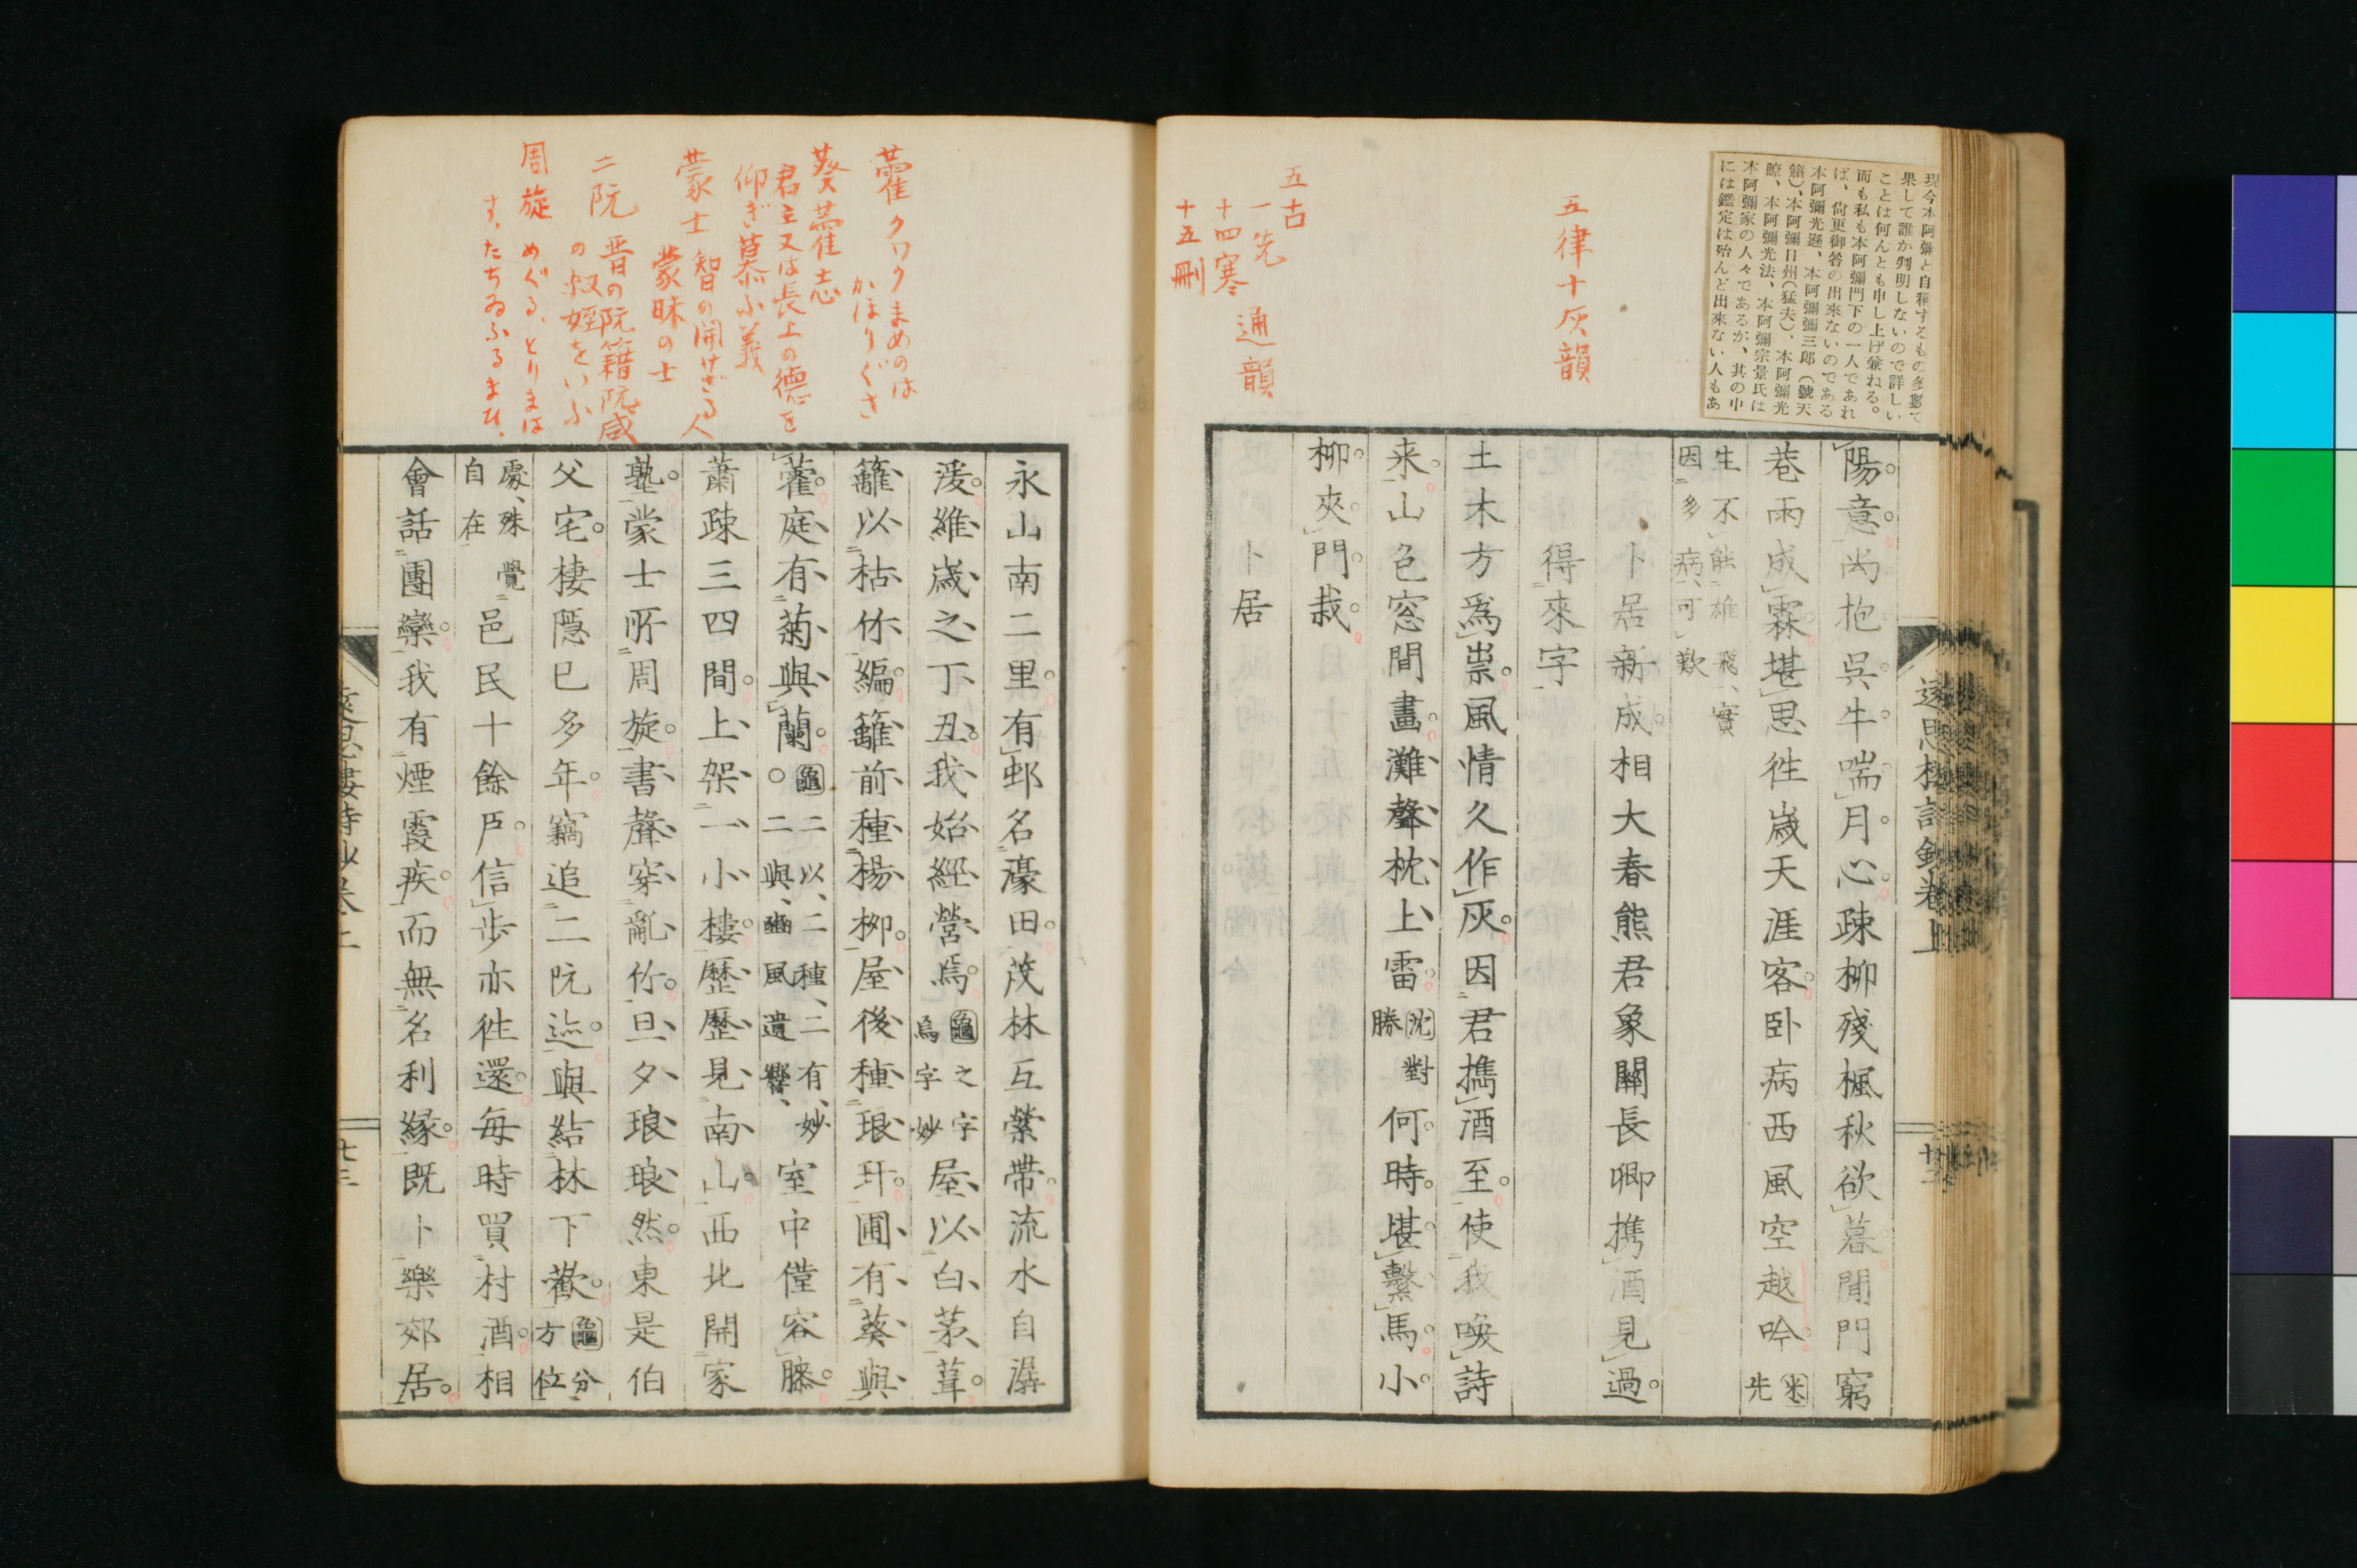 現今本阿彌と自稱するもの多數で
果して誰か判明しないので詳しい
ことは何んとも申し上げ兼ねる。
而も私も本阿彌門下の一人であれ
ば、尙更御答の出來ないのである
本阿彌光遜、本阿彌彌三郎（號天
籟）、本阿彌日州（猛夫）、本阿彌光
瞭、本阿彌光法、本阿彌宗景氏は
本阿彌家の人々であるが、其の中
には鑑定は殆んど出來ない人もあ
五律十灰韻
五古
一先
十四寒
十五刪
通韻
陽意尚抱呉牛喘月心疎柳殘楓秋欲暮閒門窮
巷雨成霖堪思徃歳天涯客卧病西風空越吟
米先
生不能雄飛、實
因多病、可歎
卜居新成相大春熊君象關長卿携酒見過
得來字
土木方爲祟風情久作灰因君携酒至使我喚詩
来山色窓間畫灘聲枕上雷
沈對
勝
何時堪繫馬小
柳夾門栽
卜居
藿 クワクまめのは
かほりぐさ
葵藿志
君主又は長上の德を
仰ぎ慕ふ義
蒙士 智の開けざる人
蒙昧の士
二阮 晋の阮籍阮咸
の叔姪をいふ
周旋 めぐる、とりまは
す、たちゐふるまひ、
永山南二里有邨名濠田茂林互縈帶流水自潺
湲維歳之丁丑我始經營焉
龜之字
焉字妙
屋以白茅葺
籬以枯竹編籬前種楊柳屋後種琅玕圃有葵與
藿庭有菊與蘭
龜二以、二種、二有、妙
二與、豳風遺響、
室中僅容膝
蕭疎三四間上架一小樓歷歷見南山西北開家
塾蒙士所周旋書聲穿亂竹旦夕琅琅然東是伯
父宅棲隱已多年竊追二阮迹與結林下歡
龜分
方位
處、殊覺
自在
邑民十餘戶信步亦徃還每時買村酒相
會話團欒我有煙霞疾而無名利緣既卜樂郊居